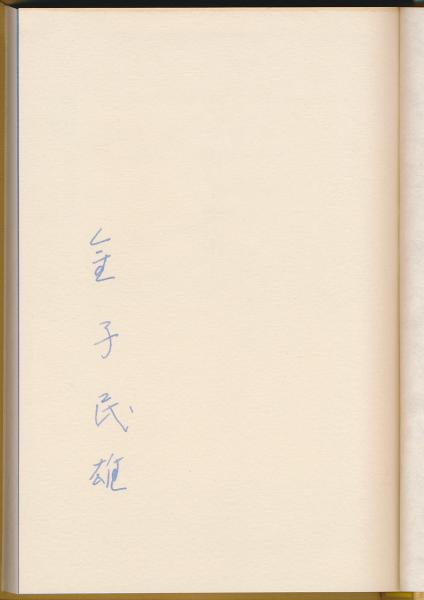 金子民雄